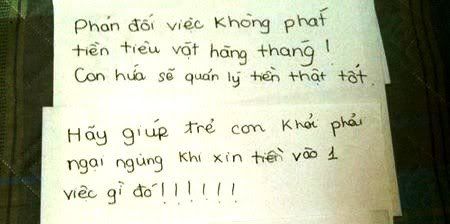 Phản đối việc không phát
tiền tiêu vặt hằng tháng !
Con hứa sẽ quản lý tiền thật tốt.
Hãy giúp trẻ con khỏi phải
ngại ngùng khi xin tiền vào 1
việc gì đó!!!!!!